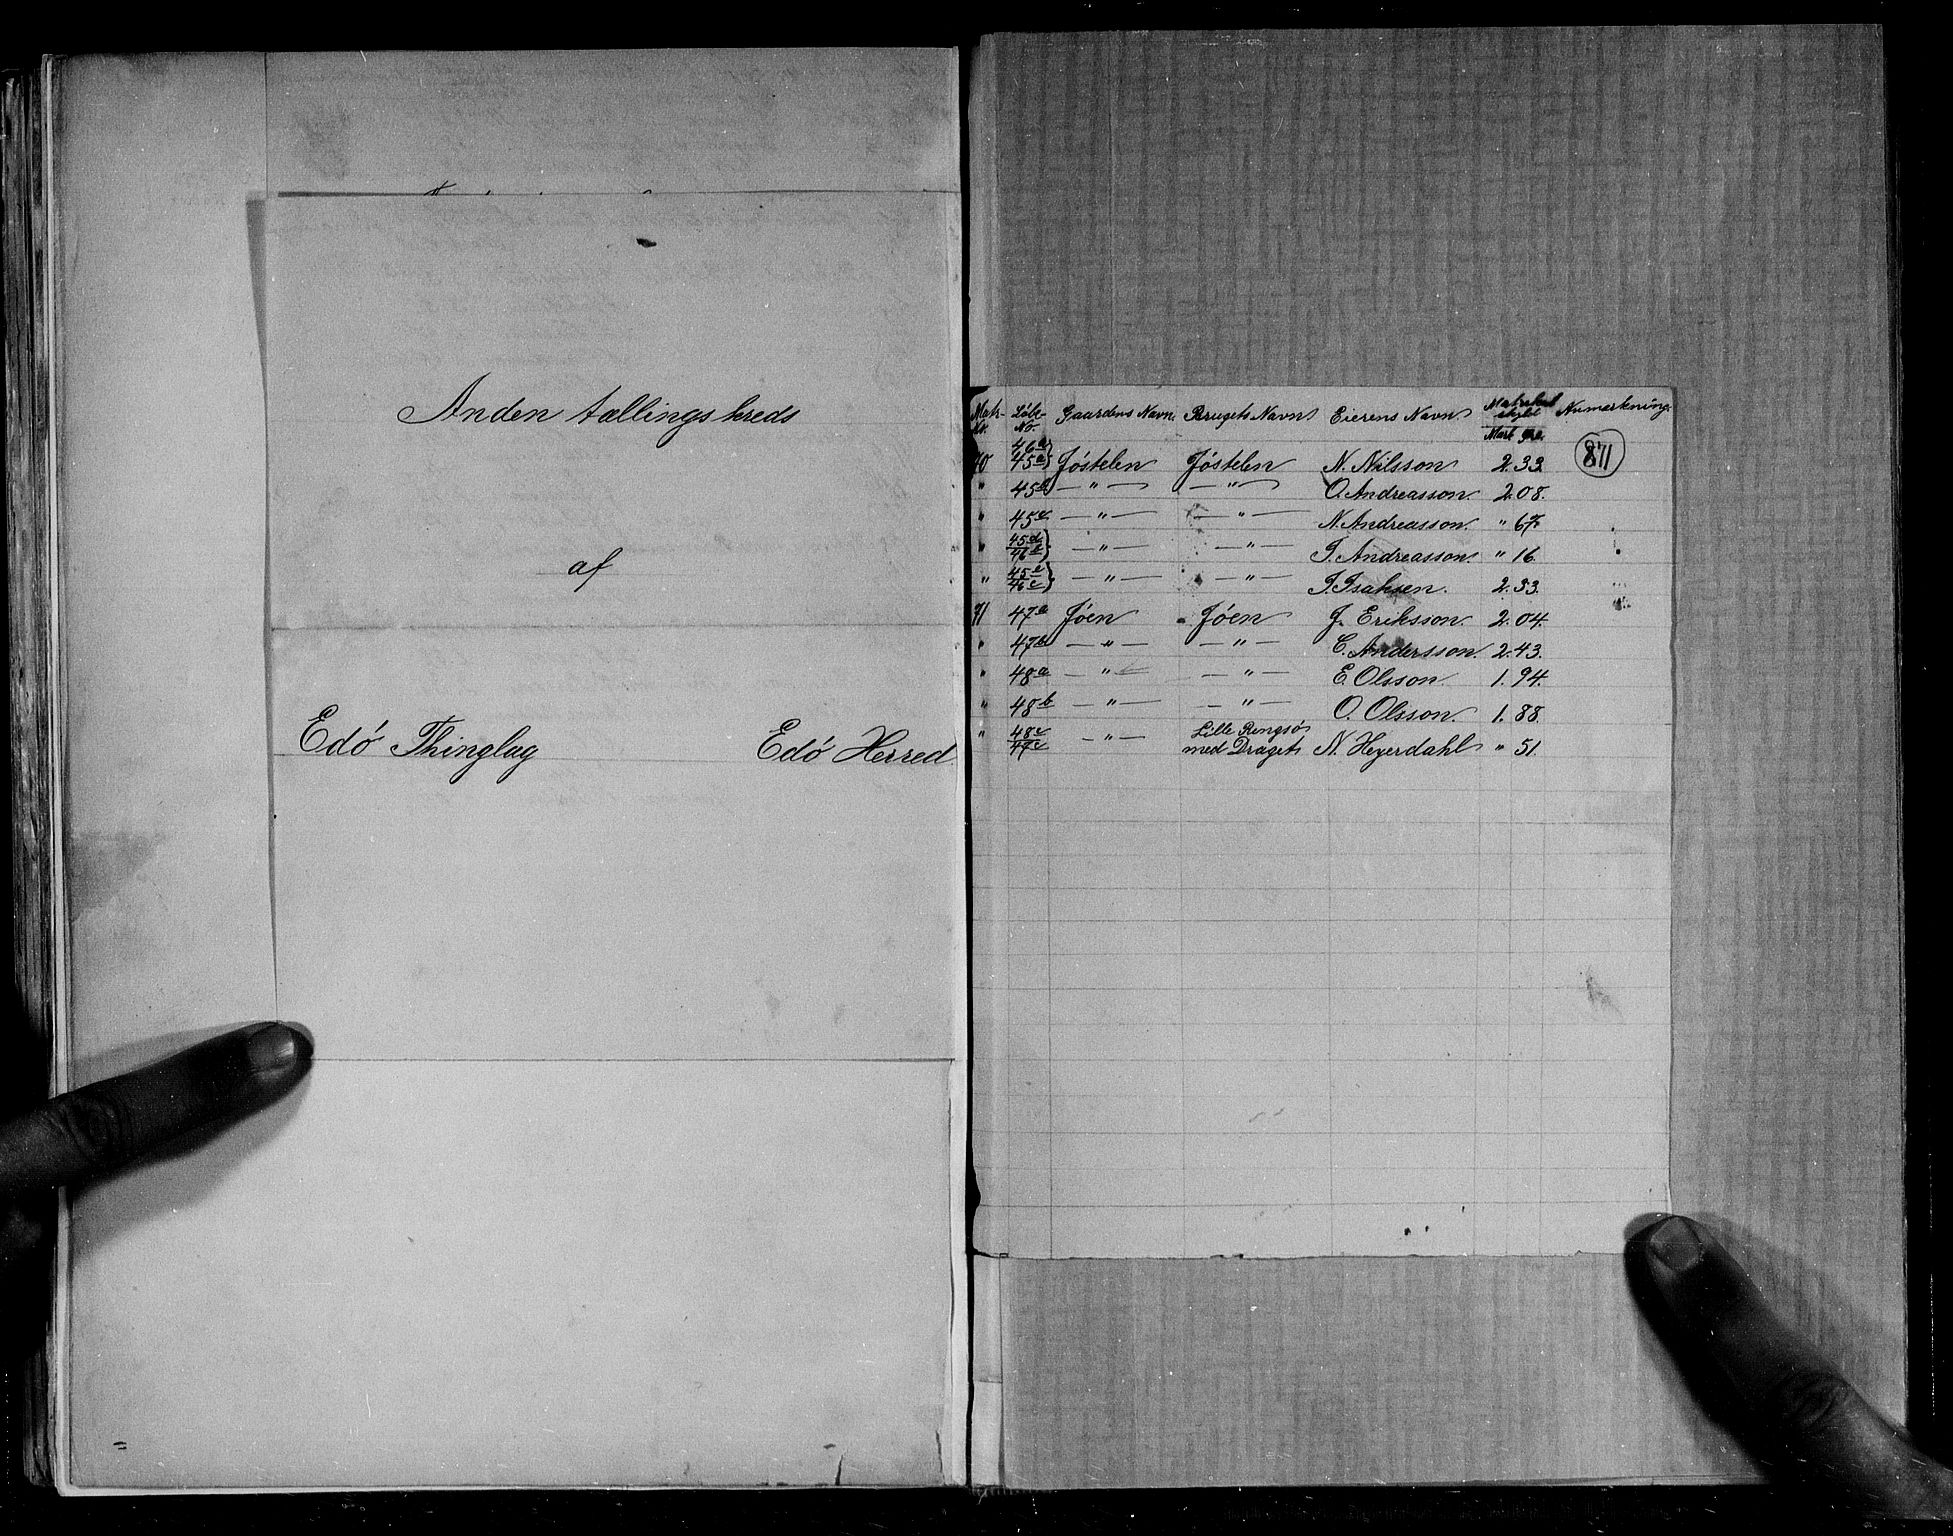 Anden tællingskreds
af
Edó Thinglag Edó Herred
Matr- No. Løb- No. Gaardens Navn Brugets Navn Eierens Navn Matrikul skyld Anmerkning.
Mark Øre.
871
46a
45a } Jóstelen Jóstelen N. Nilsson 2 33
" 45b — " — — " — O. Andreasson 2 08.
" 45c — " — — " — N. Andreasson " 67.
" 45d 46 } — " — — " — I. Andreasson " 16
" 45e 46c } — " — — " — I. Isaksen. 2. 33.
71 47a Jóen Jóen J. Eriksson. 2. 04.
" 47b — " — — " — C. Andersson. 2. 43.
" 48a — " — — " — E. Olsson. 1. 94.
" 48b — " — — " — O. Olsson. 1. 88.
" 48c 47c — " — Lille Rensø
med Draget N. Heyerdahl " 51.